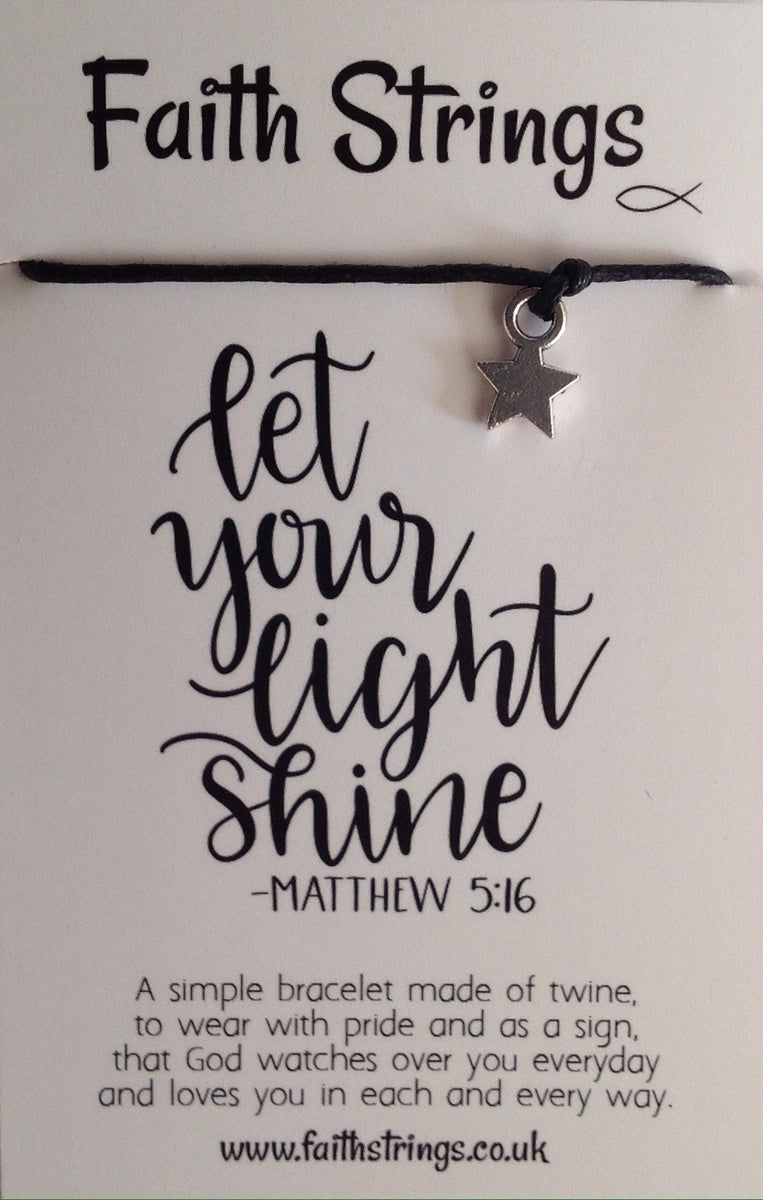 Faith Strings
let
your
light
shine
-MATTHEW 5:16
A simple bracelet made of twine,
to wear with pride and as a sign,
that God watches over you everyday
and loves you in each and every way.
www.faithstrings.co.uk